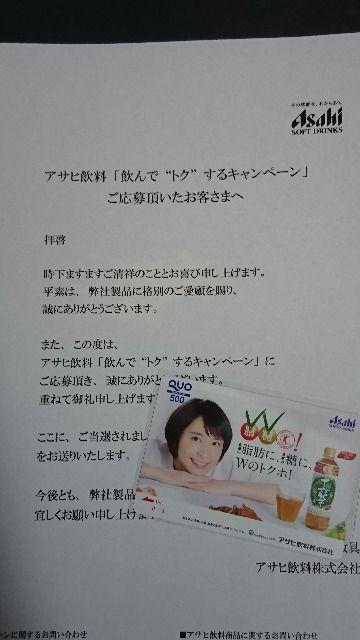 その感動を、わかちあう。
Asahi
SOFT DRINKS
アサヒ飲料「飲んで“トク”するキャンペーン」
ご応募頂いたお客さまへ
拝啓
時下ますますご清祥のこととお喜び申し上げます。
平素は、弊社製品に格別のご愛顧を賜り、
誠にありがとうございます。
また、この度は、
アサヒ飲料「飲んで“トク”するキャンペーン」に
ご応募頂き、誠にありがと ざいます。
重ねて御礼申し上げます
ここに、ご当選されまし
をお送りいたします。
今後とも、弊社製品
宜しくお願い申し上げま
QUO
500
Asahi
SOFT DRINKS
W!
脂肪に、糖に、
Wのトクホ!
アサヒ飲料株式会社
敬具
アサヒ飲料株式会社
ーンに関するお問い合わせ
■アサヒ飲料商品に関するお問い合わせ